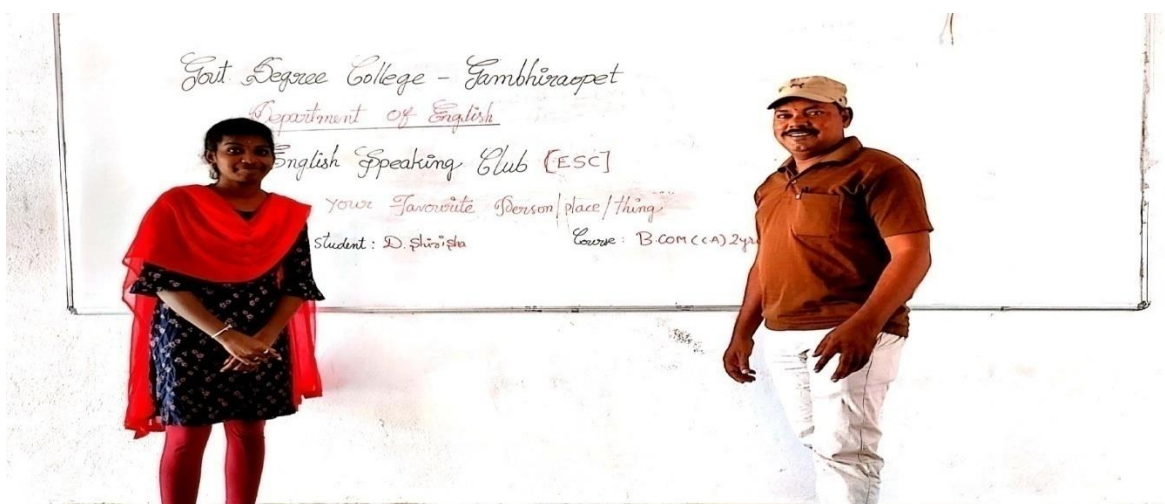 Govt Degree College - Gambhiraopet
Department of English
English Speaking Club [ESC]
your Favourite Person/place/thing
Student : D. Shirisha Course : B.COM (CA) 2yr